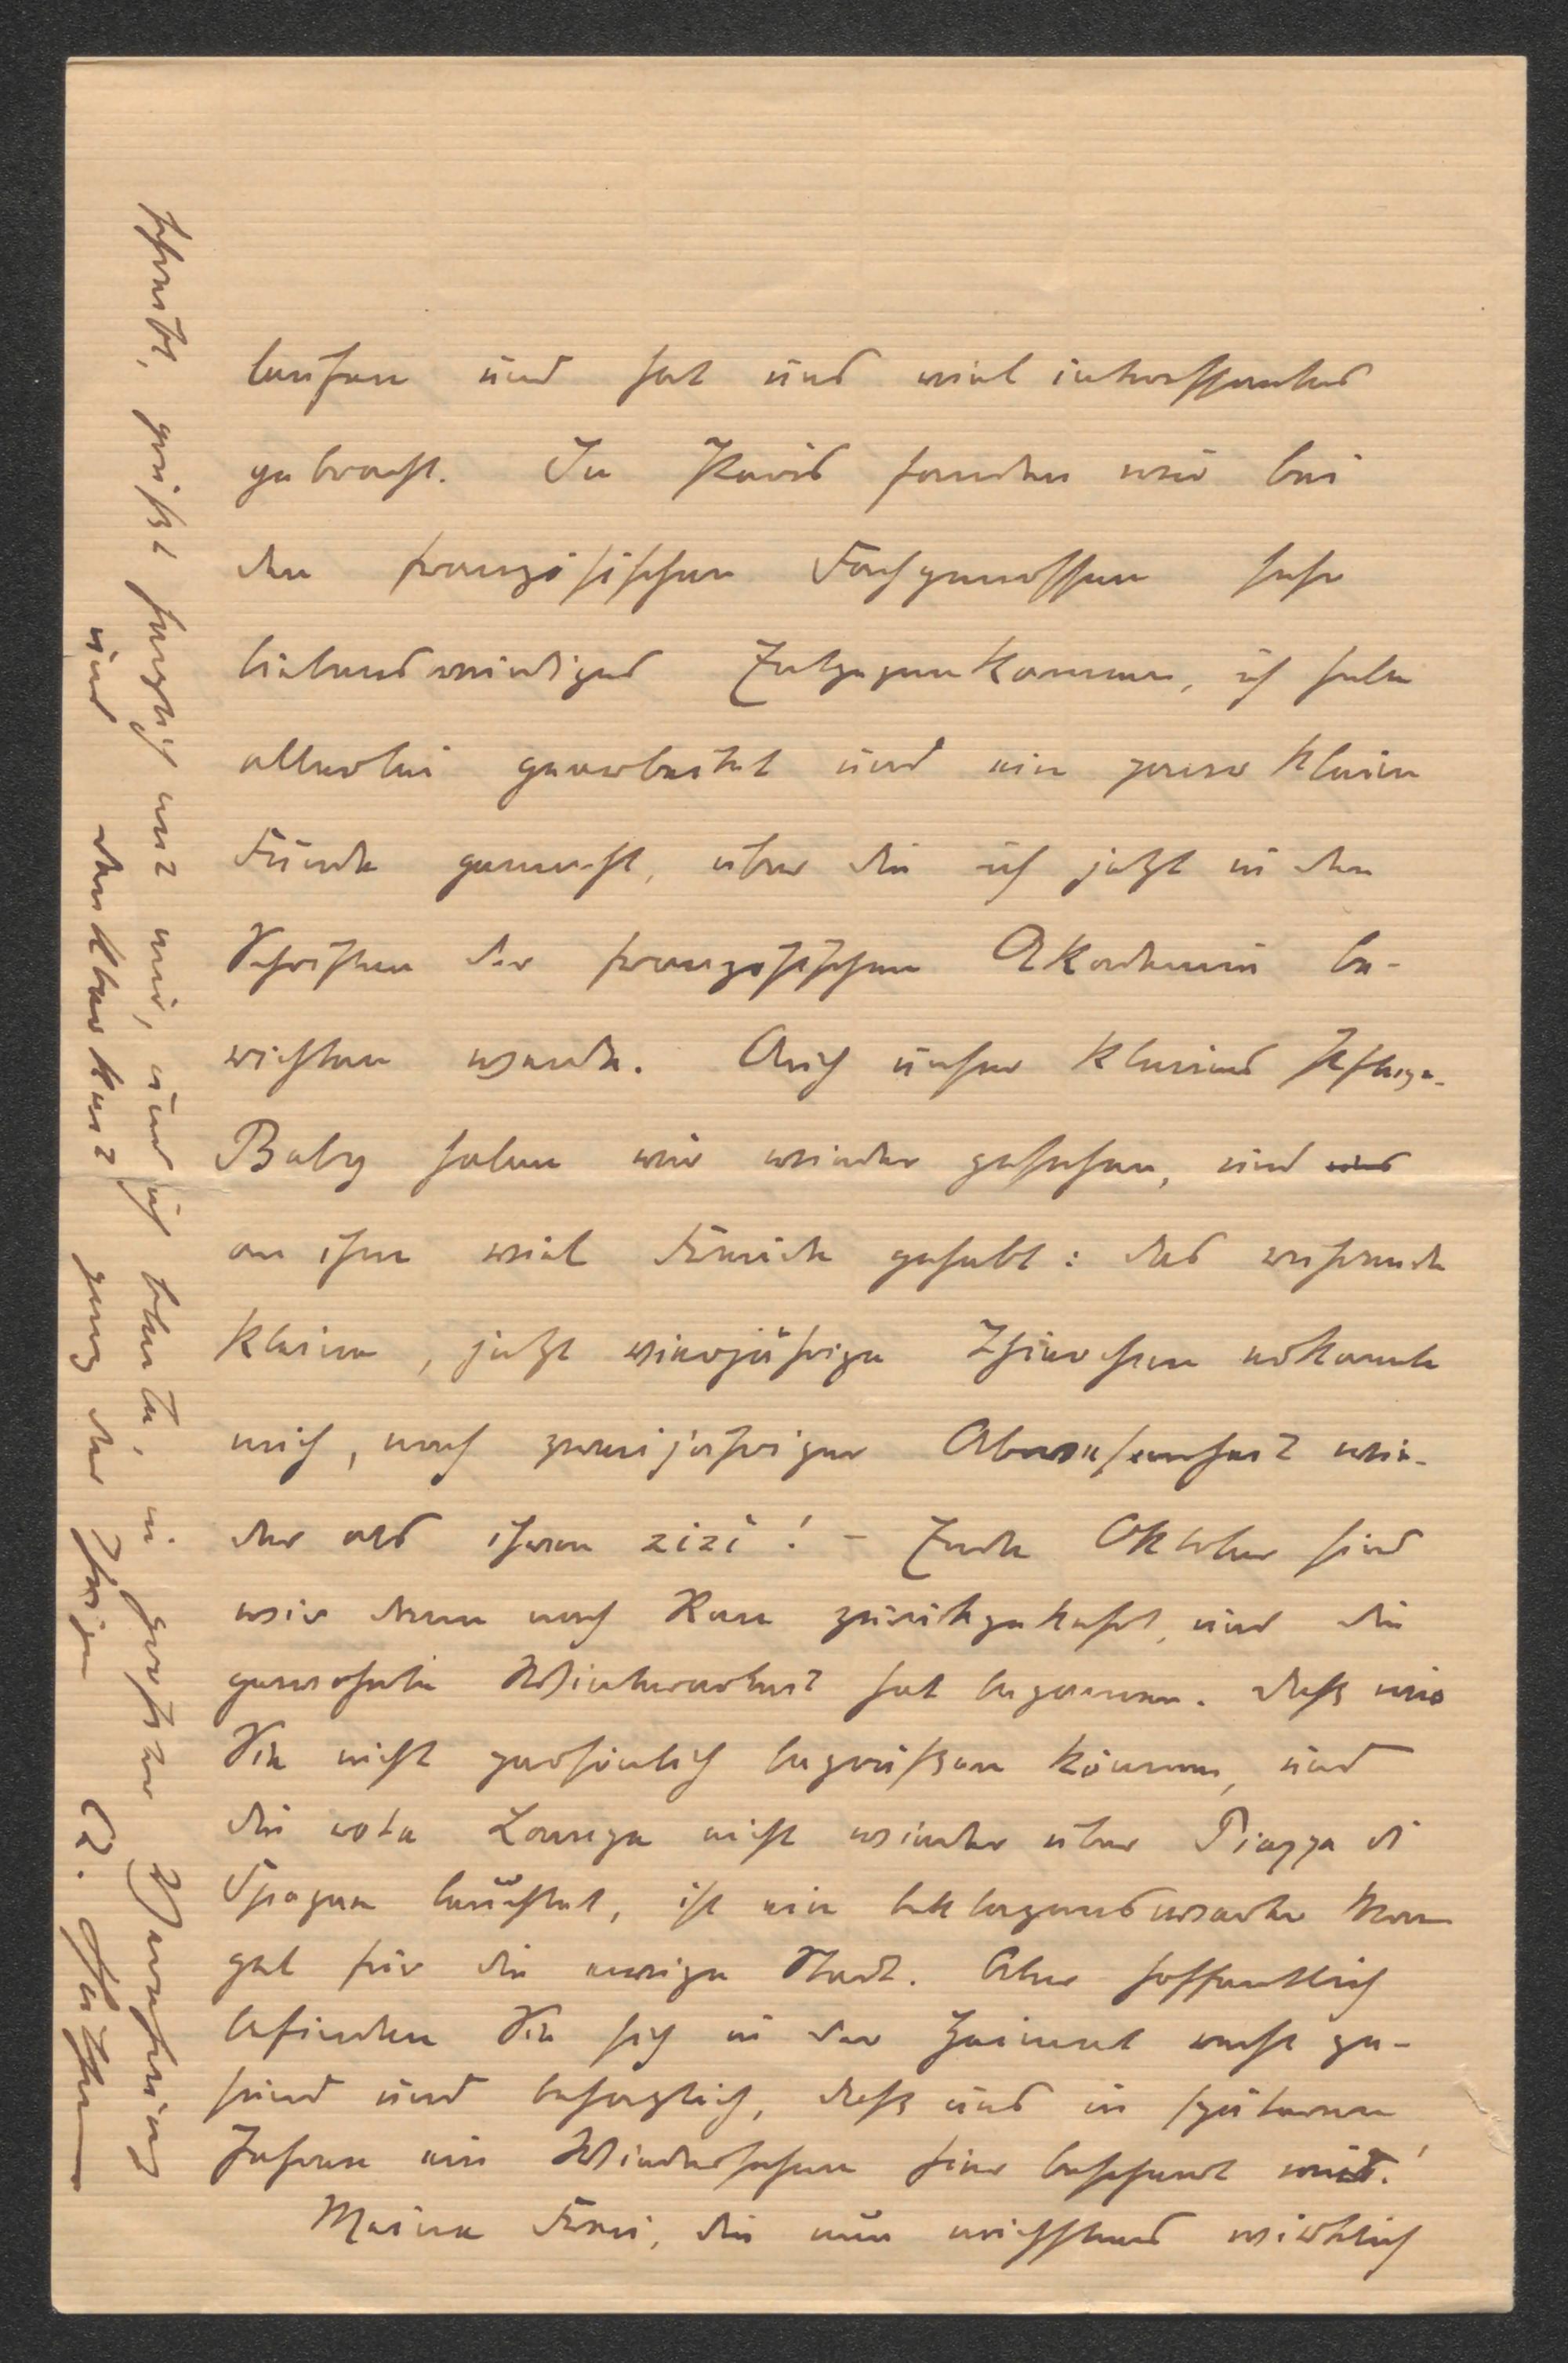 laufen und hat uns viel interessantes
gebracht. In Paris fanden wir bei
den französischen Fachgenossen sehr
liebenswürdiges Entgegenkommen, ich habe
allerlei gearbeitet und ein paar kleine
Funde gemacht, über die ich jetzt in den
Schriften der französischen Akademie be-
richten werde. Auch unser kleines Pflege-
Baby haben wir wieder gesehen, und
an ihm viel Freude gehabt: das reizende
kleine, jetzt vierjährige Thierchen erkannte
mich, nach zweijähriger Abwesenheit wie-
der als ihren zizi! – Ende Oktober sind
wir dann nach Rom zurückgekehrt, und die
gewohnte Winterarbeit hat begonnen. Daß wir
Sie nicht persönlich begrüßen können, und
die rote Lampe nicht wieder über Piazza di
Spagna leuchtet, ist ein beklagenswerter Man
gel für die ewige Stadt. Aber hoffentlich
befinden Sie sich in der Heimat recht ge-
sund und behaglich, daß uns in späteren
Jahren ein Wiedersehen hier beschert wird!
Meine Frau, die nun nächstens wirklich
herzlich mit mir, und ich bleibe, in großer Verehrung
und Dankbarkeit ganz der Ihrige
Ch. Hülsen